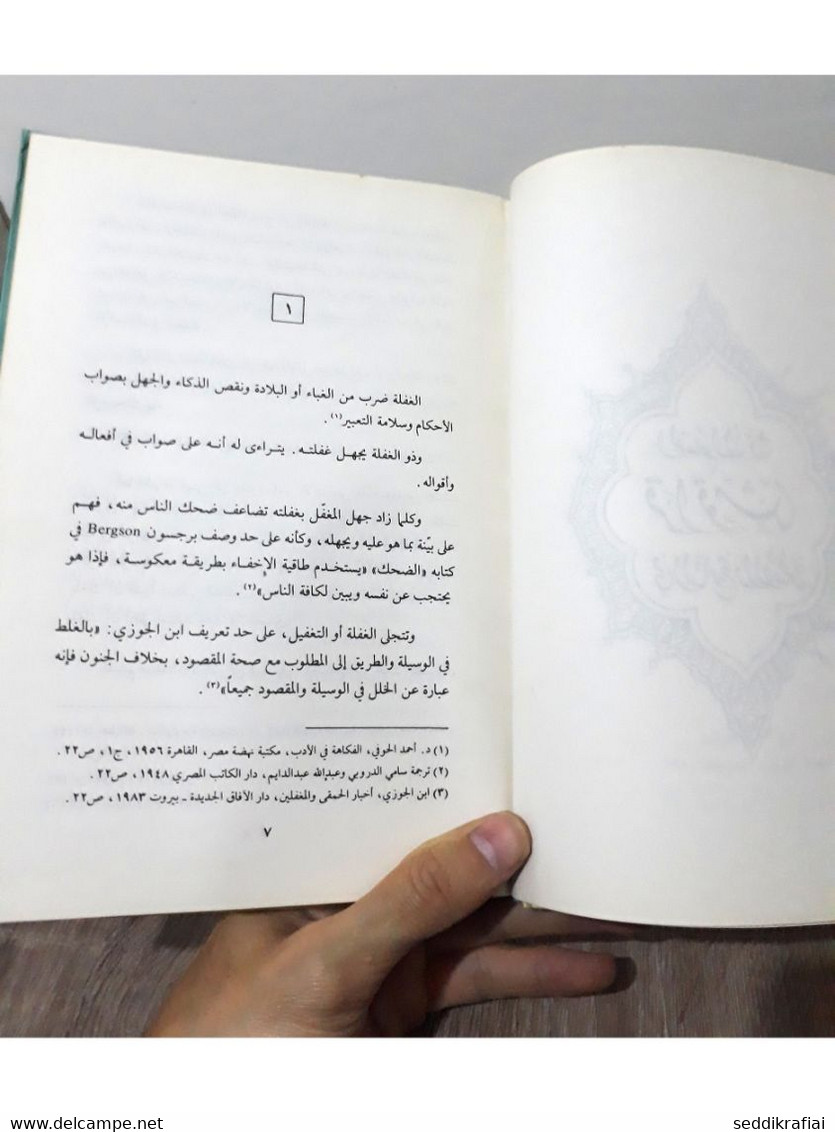 ١
الغفلة ضرب من الغباء أو البلادة ونقص الذكاء والجهل بصواب
الأحكام وسلامة التعبير(١) .
وذو الغفلة يجهل غفلته. يتراءى له أنه على صواب في أفعاله
وأقواله.
وكلما زاد جهل المغفّل بغفلته تضاعف ضحك الناس منه، فهم
على بيّنة بما هو عليه ويجهله، وكأنه على حد وصف برجسون Bergson في
كتابه «الضحك» «يستخدم طاقية الإخفاء بطريقة معكوسة، فإذا هو
يحتجب عن نفسه ويبين لكافة الناس»(٢) .
وتتجلى الغفلة أو التغفيل، على حد تعريف ابن الجوزي: «بالغلط
في الوسيلة والطريق إلى المطلوب مع صحة المقصود، بخلاف الجنون فإنه
عبارة عن الخلل في الوسيلة والمقصود جميعاً»(٣) .
(١) د. أحمد الحوفي، الفكاهة في الأدب، مكتبة نهضة مصر، القاهرة ١٩٥٦، ج١، ص٢٢ .
(٢) ترجمة سامي الدروبي وعبدالله عبدالدايم، دار الكاتب المصري ١٩٤٨، ص٢٢ .
(٣) ابن الجوزي، أخبار الحمقى والمغفلين، دار الآفاق الجديدة ـ بيروت ١٩٨٣، ص٢٢ .
٧
www.delcampe.net
seddikrafiai